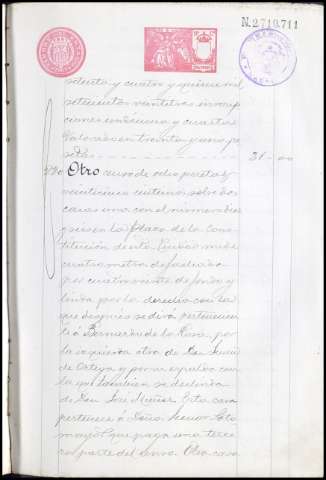 N.2719,711
setenta y cuatro y quince mil
setecientos veintitres inscrip
ciones undécima y cuarta
Valorado en treinta y uno pe
setas 31-00
Otro censo de ocho pesetas y
veinticinco centimos sobre dos
casas una con el número diez
y seis en la plaza de la Cons
titución de esta Ciudad mide
cuatro metros de fachada
por cuatro veinte de fondo y
linda por la derecha con la
que después se dirá perteneciente
á Bernardo de la Rosa, por
la izquierda otra de Don
de Ortega y por su espalda con
la que tambien se deslinda
de Don José Muñoz. Esta casa
pertenece á Doña Leonor Soto
mayor que paga una terce
ra parte del censo. Otra casa